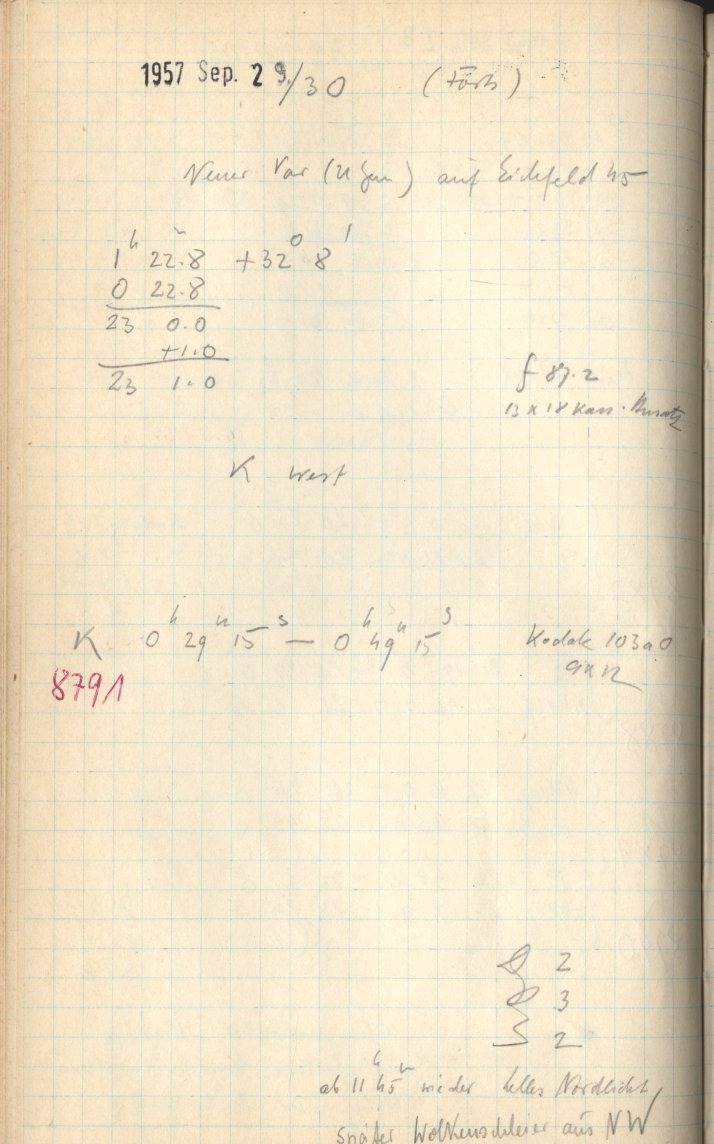 1957 Sep. 2 9./30 (Forts)
Neuer Var (U Gem) auf Eichfeld 45
1ʰ 22ᵐ.8 +32° 8'
0 22.8
23 0.0
+1.0
23 1.0
f 87.2
13 x 18 Kass.
K West
K 0ʰ 29ᵐ 15ˢ — 0ʰ 49ᵐ 15ˢ Kodak 103a0
8791 9x12
2
3
2
ab 11ʰ 45ᵐ wieder helles Nordlicht
später Wolkenschleier aus NW